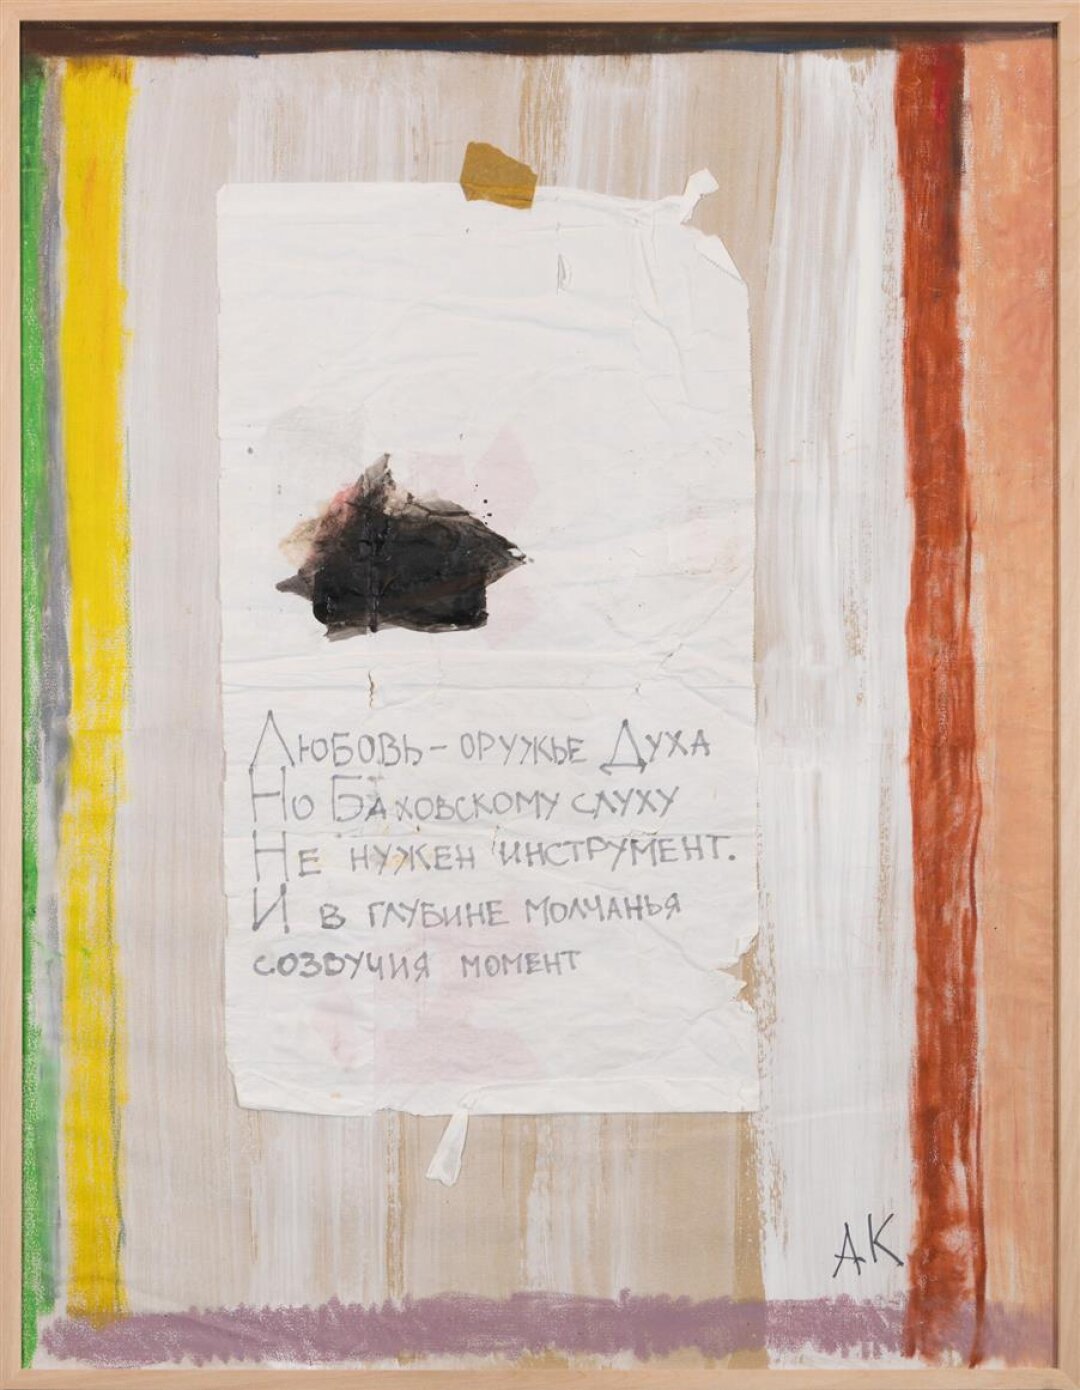 Любовь – оружье Духа
Но Баховскому слуху
Не нужен инструмент.
И в глубине молчанья
созвучия момент
АК